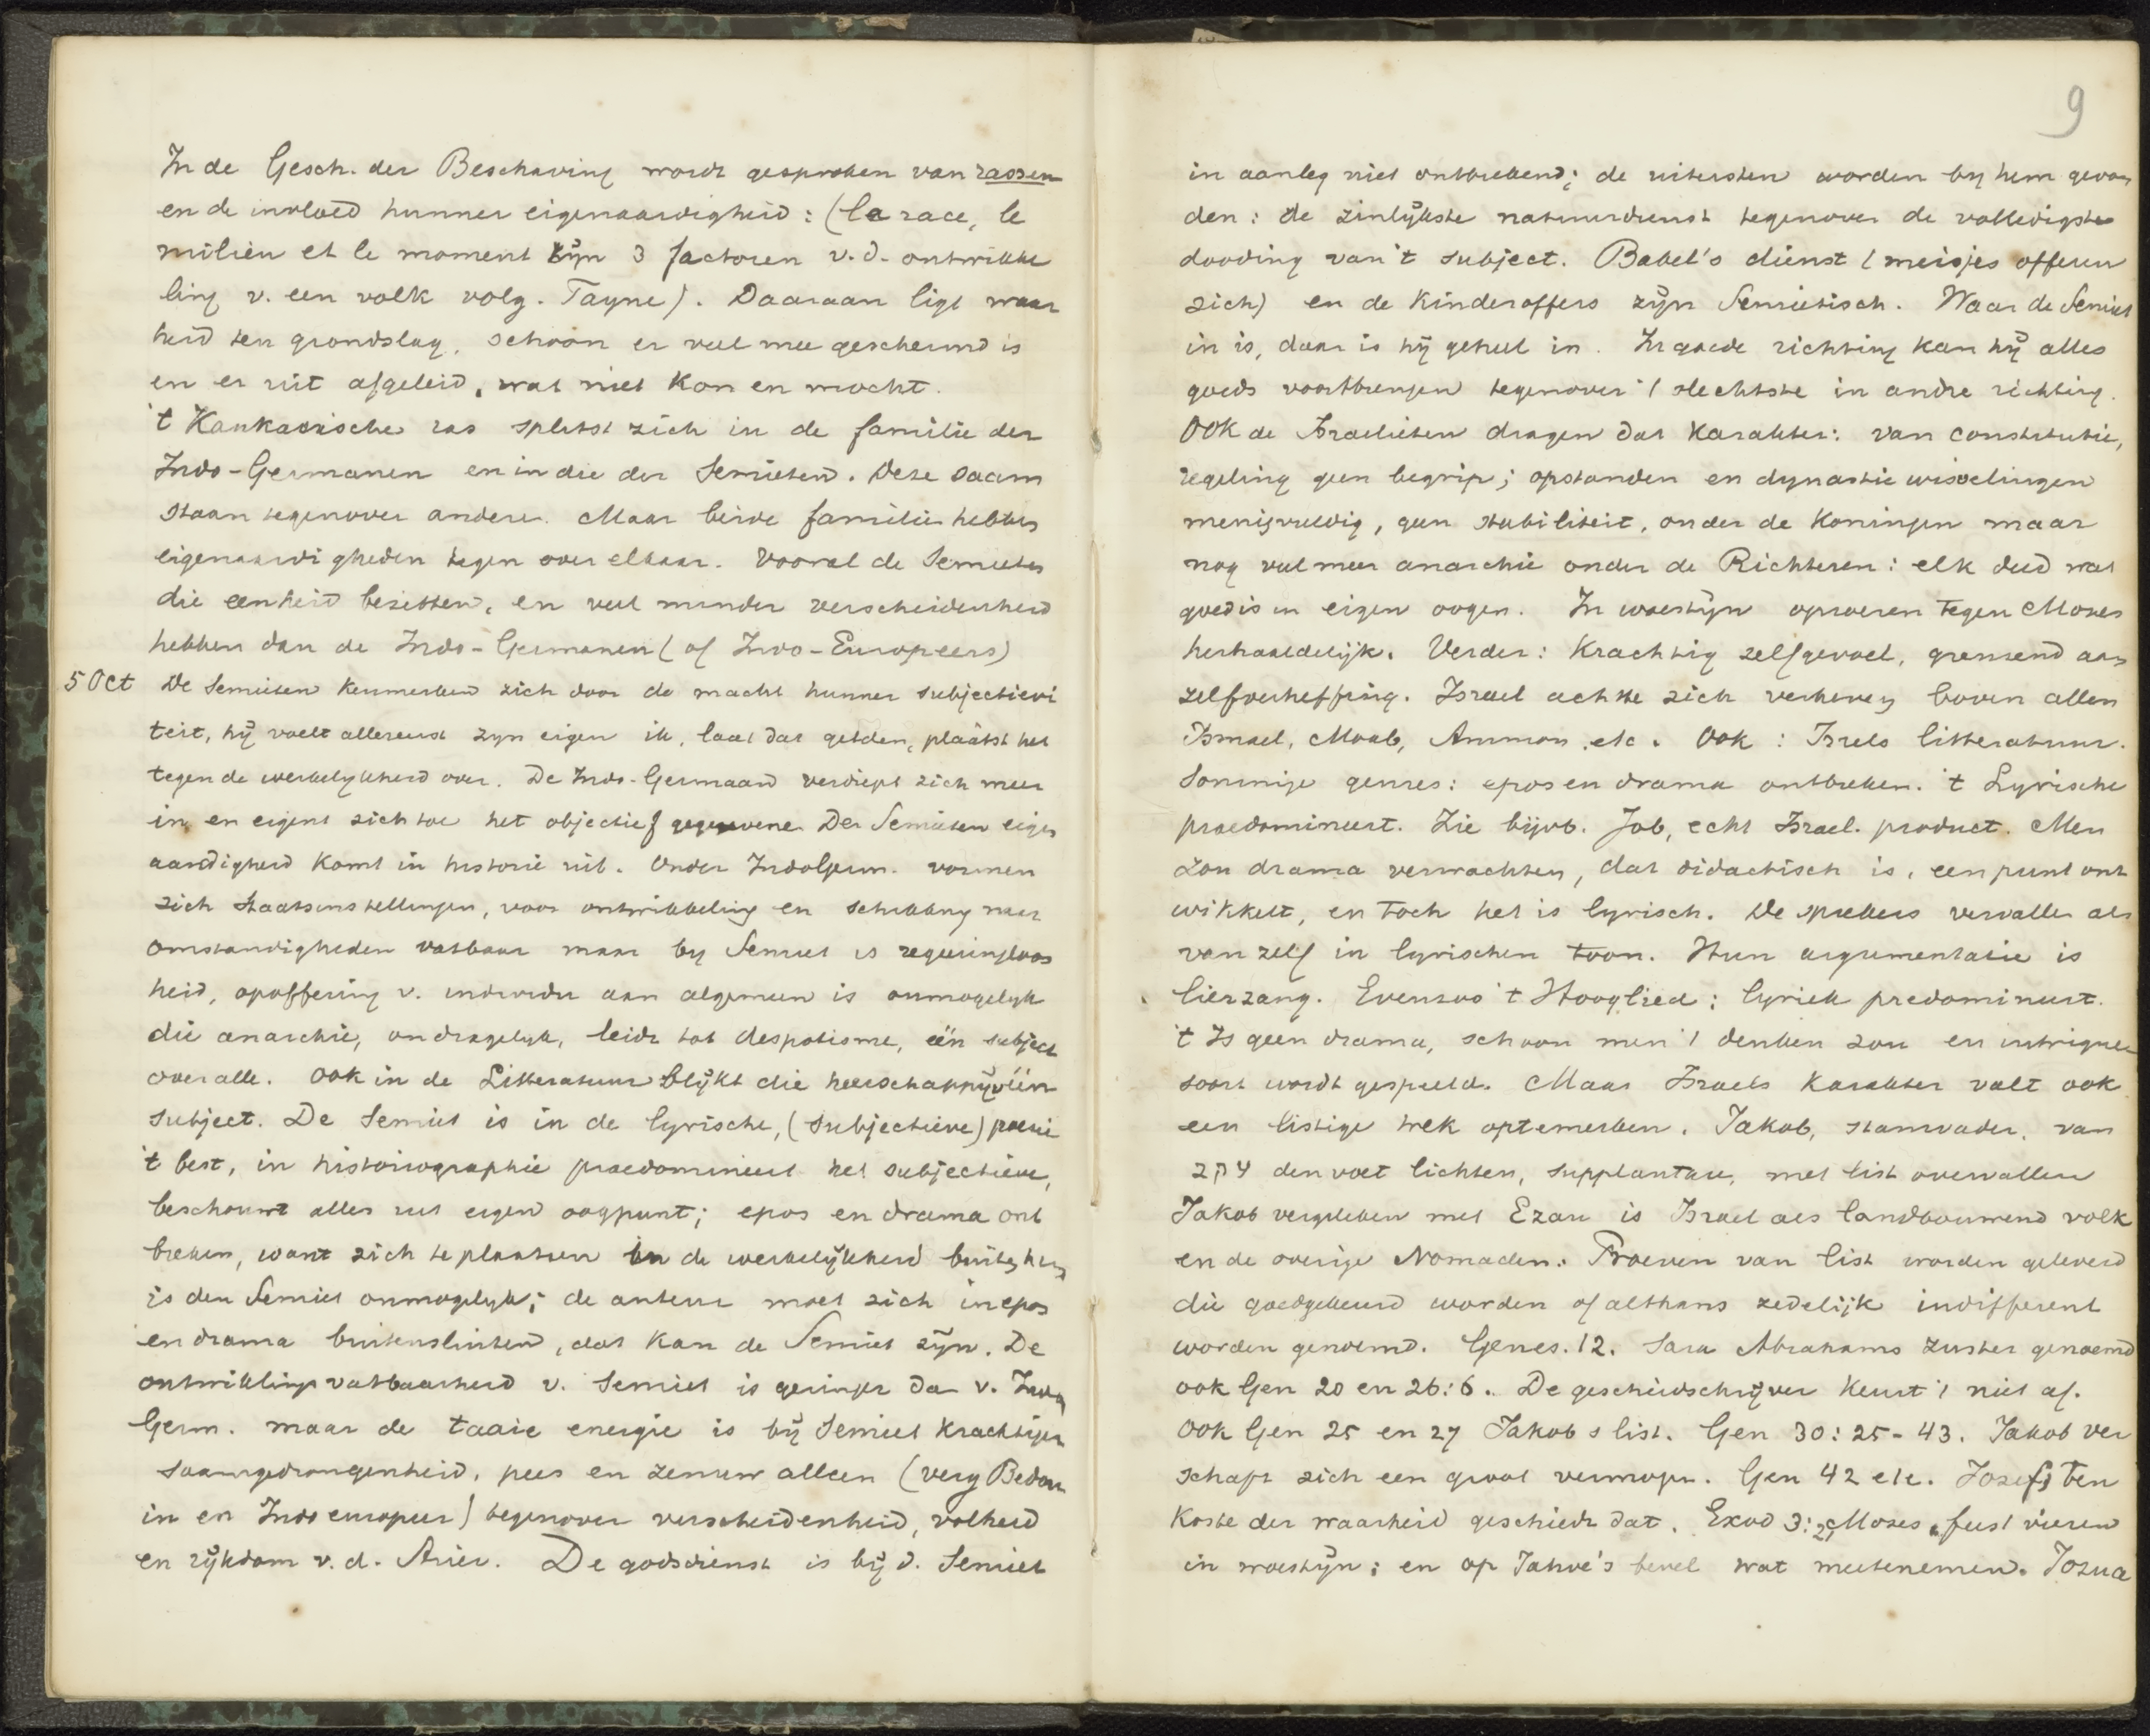 In de Gesch. der Beschaving wordt gesproken van rassen
en de invloed hunner eigenaardigheid: (la race, le
milieu et le moment zijn 3 factoren v.d. ontwikke
ling v. een volk volg. Tayne). Daaraan ligt waar
heid ten grondslag, schoon er veel mee geschermd is
en er uit afgeleid, wat niet kon en mocht.
't Kaukasische ras splitst zich in de familie der
Indo-Germanen en in die der Semieten. Deze saam
staan tegenover andere. Maar beide familien hebben
eigenaardigheden tegen over elkaar. Vooral de Semieten
die eenheid bezitten, en veel minder verscheidenheid
hebben dan de Indo-Germanen (of Indo-Europeers)
5 Oct De Semieten kenmerken zich door de macht hunner subjectivi
teit, hij voelt allereerst zyn eigen ik, laat dat gelden, plaatst het
tegen de werkelykheid over. De Indo-Germaan verdiept zich meer
in en eigent zich toe het objectief gegevene. Der Semieten eigen
aardigheid komt in historie uit. Onder Indogerm. vormen
zich staatsinstellingen, voor ontwikkeling en schikking naar
omstandigheden vatbaar maar by Semiet is regeeringloos
heid, opoffering v. individu aan algemeen is onmogelyk
die anarchie, ondragelyk, leidt tot despotisme, één subject
over alle. Ook in de Litteratuur blijkt die heerschappij v één
subject. De Semiet is in de lyrische, (subjectieve) poesie
't best, in historiographie praedomineert het subjectieve,
beschouwt alles uit eigen oogpunt; epos en drama ont
breken, want zich te plaatsen in de werkelijkheid buiten hem
is den Semiet onmogelyk; de auteur moet zich in epos
en drama buitensluiten, dat kan de Semiet zijn. De
ontwikkelings vatbaarheid v. Semiet is geringer dan v. Indo
Germ. maar de taaie energie is bij Semiet krachtiger
saamgedrongenheid, pees en zenuw alleen (verg Bedou
in en Indo europeer) tegenover verscheidenheid, volheid
en rijkdom v.d. Arier. De godsdienst is bij d. Semiet
9
in aanleg niet ontbrekend; de uitersten worden by hem gevon
den: de zinlijkste natuurdienst tegenover de volledigste
dooding van 't subject. Babel's dienst (meisjes offeren
zich) en de Kinderoffers zijn Semietisch. Waar de Semiet
in is, daar is hij geheel in. In goede richting kan hij alles
goeds voortbrengen tegenover 't slechtste in andre richting.
Ook de Israelieten dragen dat karakter: van constitutie,
regeling geen begrip; opstanden en dynastie wisselingen
menigvuldig, geen stabiliteit, onder de Koningen maar
nog veel meer anarchie onder de Richteren: elk deed wat
goed is in eigen oogen. In woestijn oproeren tegen Mozes
herhaaldelijk. Verder: Krachtig zelfgevoel, grenzend aan
zelfverheffing. Israel achtte zich verheven boven allen
Ismael, Moab, Ammon etc. Ook: Isrels litteratuur.
Sommige genres: epos en drama ontbreken. 't Lyrische
praedomineert. Zie bijvb. Job, echt Israel. product. Men
zou drama verwachten, dat didactisch is, een punt ont
wikkelt, en toch het is lyrisch. De sprekers vervallen als
van zelf in lyrischen toon. Hun argumentatie is
lierzang. Evenzoo 't Hooglied: lyriek predomineert.
't Is geen drama, schoon men 't denken zou en intrigue
soort wordt gespeeld. Maar Israels karakter valt ook
een listige trek optemerken. Jakob, stamvader, van
עקב den voet lichten, supplantare, met list overvallen
Jakob vergeleken met Ezau is Israel als landbouwend volk
en de overige Nomaden. Proeven van list worden geleverd
die goedgekeurd worden of althans zedelijk indifferent
worden genoemd. Genes. 12. Sara Abrahams zuster genoemd
ook Gen 20 en 26:6. De geschiedschrijver keurt 't niet af.
Ook Gen 25 en 27 Jakob s list. Gen 30: 25-43. Jakob ver
schaft zich een groot vermogen. Gen 42 etc. Jozef, ten
koste der waarheid geschiedt dat. Exod 3: Mozes, feest vieren
in woestijn; en op Jahve's bevel wat meetenemen. Jozua